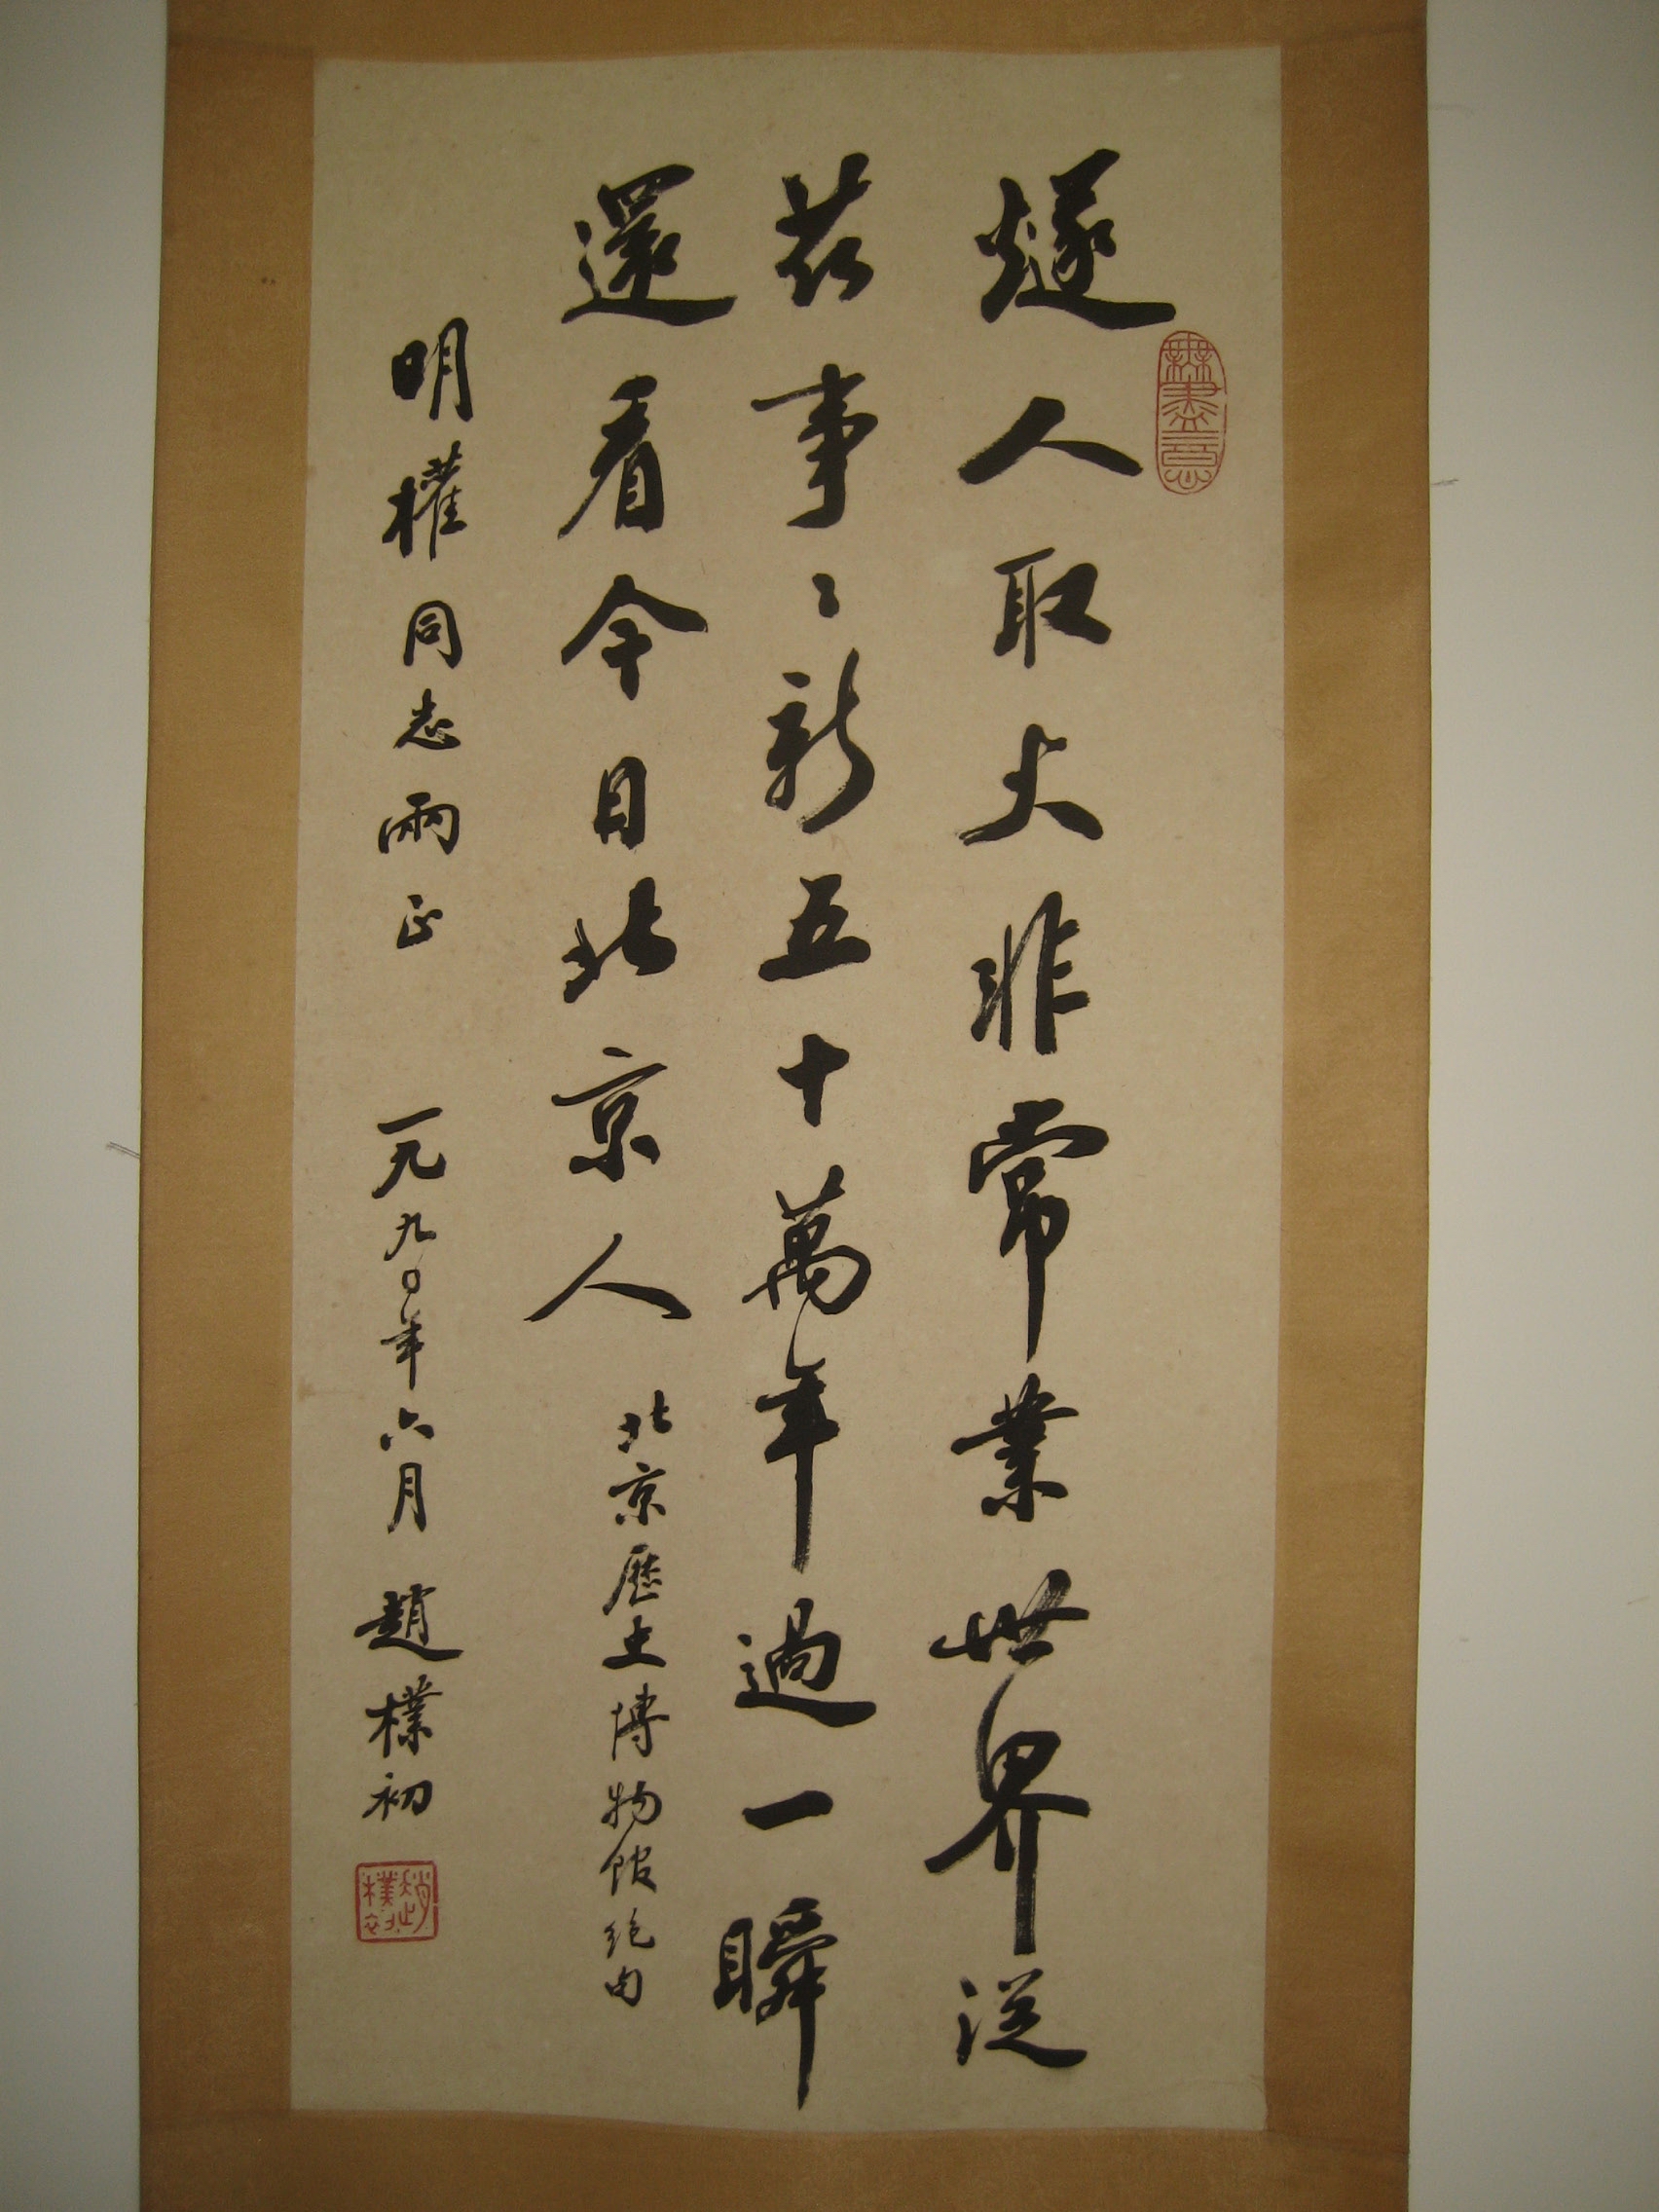 燧人取火非常業世界從
無盡意
茲事〻新五十萬年過一瞬
還看今日北京人 北京歷史博物館絕句
明權同志兩正 一九九〇年六月 趙樸初
趙樸初